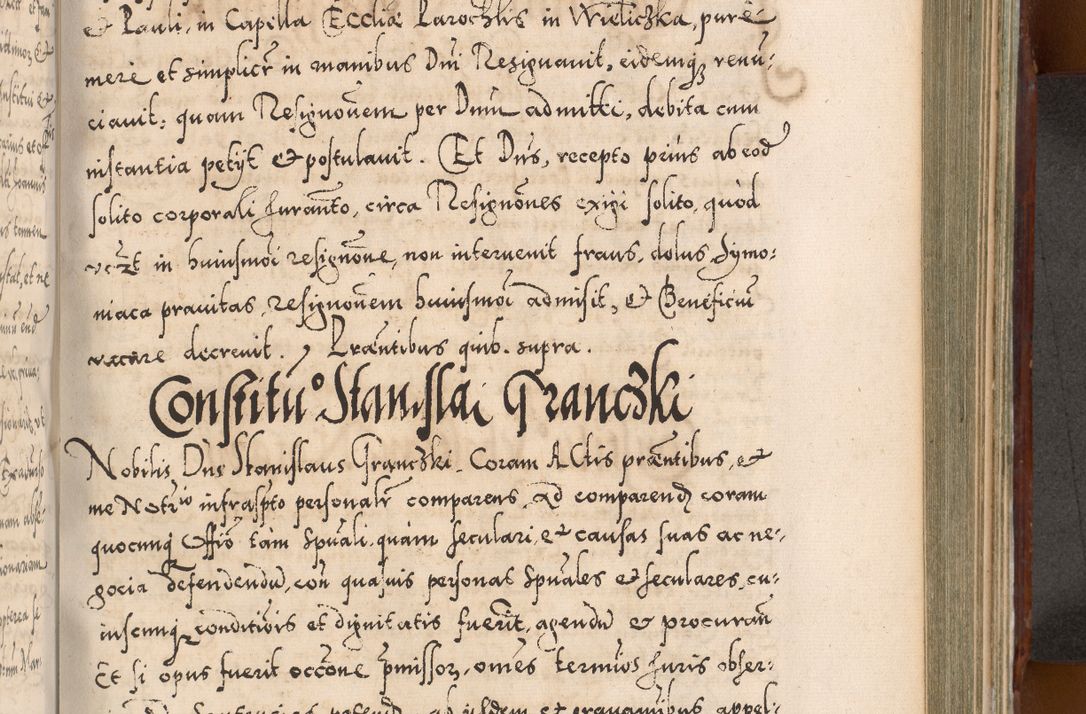 & Pauli, in Capella Eccliæ Parochlis in Wieliczka, purè
merè et simplicr in manibus Dni Resignauit, eidemq3 renu:
ciauit: quam Resignoem per Dnm admitti, debita cum
instantia petijt & postulauit. Et Dns, recepto prius ab eod
solito corporali Juramto, circa Resignones exigi solito, quòd
vczt in huiusmoi resignone, non interuenit fraus, dolus Symo:
niaca prauitas, resignoem huiusmoi admisit, & Beneficiu
vacare decreuit. Præntibus quib. supra.
Constitu° Stanislai Granczki
Nobilis Dns Stanislaus Granczki. Coram Actis præntibus, et
me Notrio infraspto personalr comparens, ad comparend coram
quocunq Offio tàm spuali, quàm seculari, et causas suas ac ne:
gocia defendendu, con quasuis personas spuales & seculares, cu:
iuscunq conditiois et dignitatis fuerit, agendu & procuran
Et si opus fuerit occone pmissor, omes termios Juris obser: